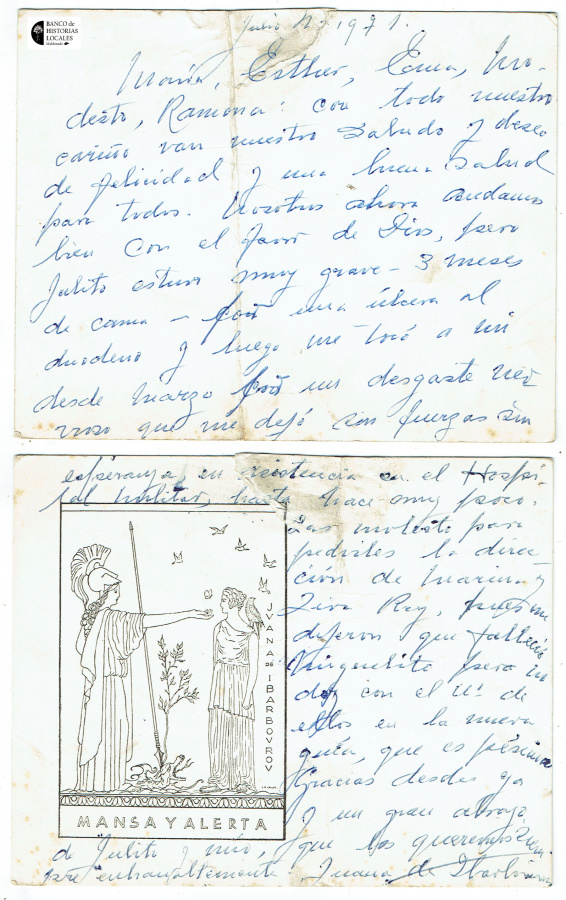 BANCO de
HISTORIAS
LOCALES
Julio 1971.
María, Esther, Ema, Mo-
desto, Ramona: con todo nuestro
cariño van nuestro saludo y deseo
de felicidad y una buena salud
para todos. Nosotros ahora andamos
bien con el favor de Dios, pero
Julito estuvo muy grave - 3 meses
de cama - por una úlcera al
duodeno y luego me tocó a mí
desde marzo por un desgaste ner
vioso que me dejó sin fuerzas sin
esperanza, en resistencia en el Hospi
tal Militar, hasta hace muy poco.
Las molesto para
pedirles la direc-
ción de Marina y
Rey, pues me
dijeron que falleció
pero no
doy con el Nº de
ellos en la nueva
guía, que es pésima
Gracias desde ya
y un gran abrazo
de Julito y mío, que los queremos siem
pre entrañablemente. Juana de Ibarbourou
JVANA DE IBARBOVROV
MANSA Y ALERTA